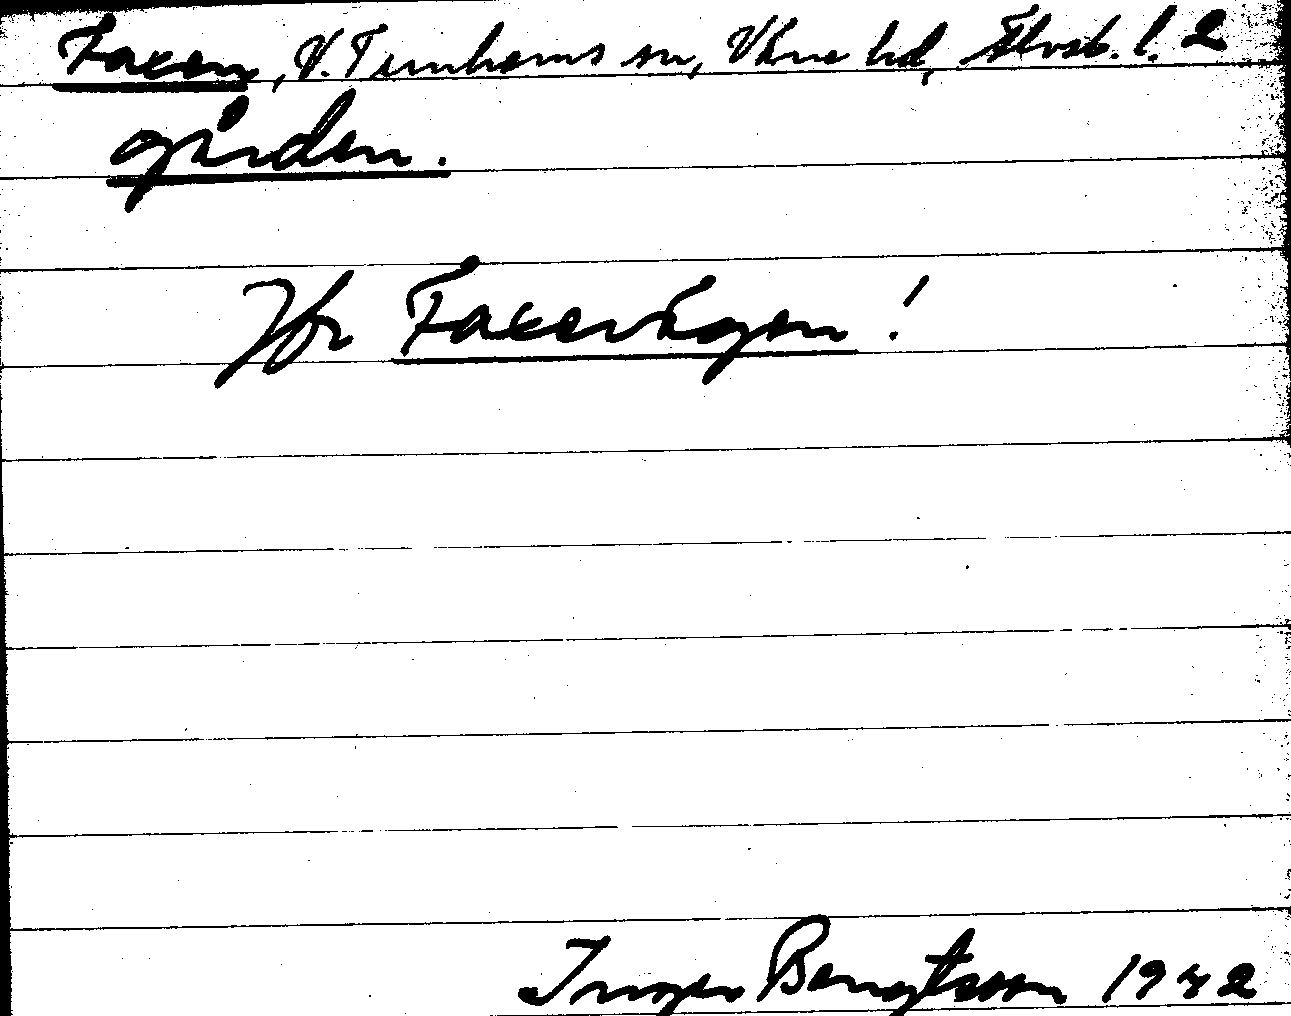 Faxen, V. Tunhems sn, Väne hd, Älvsb. l. 2
gården.
Jfr Faxevägen!
Bengtsson 1942